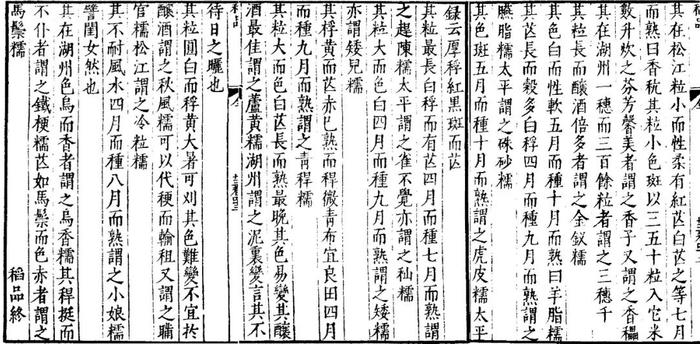 其在松江粒小而性柔有紅芒白芒之等七月
而熟曰香秔其粒小色斑以三五十粒入它米
數升炊之芬芳馨美者謂之香子又謂之香
其在湖州一穗而三百餘粒者謂之三穗千
其粒長而釀酒倍多者謂之金釵糯
其色白而性軟五月而種十月而熟曰羊脂糯
其芒長而殼多白稃四月而種九月而熟謂之
臙脂糯太平謂之硃砂糯
其色斑五月而種十月而熟謂之虎皮糯太平
録云厚稃紅黑斑而芒
其粒最長白稃而有芒四月而種七月而熟謂
之趕陳糯太平謂之雀不覺亦謂之秈糯
其粒大而色白四月而種九月而熟謂之矮糯
亦謂矮兒糯
其稃黃而芒赤已熟而稈微青布宜良田四月
而種九月而熟謂之青稈糯
其粒大而色白芒長而熟最晚其色易變其釀
酒最佳謂之蘆黃糯湖州謂之泥裏變言其不
稻品
待日之曬也
其粒圓白而稃黃大暑可刈其色難變不宜於
釀酒謂之秋風糯可以代粳而輸租又謂之瞞
官糯松江謂之冷粒糯
其不耐風水四月而種八月而熟謂之小娘糯
譬閨女然也
其在湖州色烏而香者謂之烏香糯其稈挺而
不仆者謂之鐵梗糯芒如馬鬃而色赤者謂之
馬鬃糯
稻品終